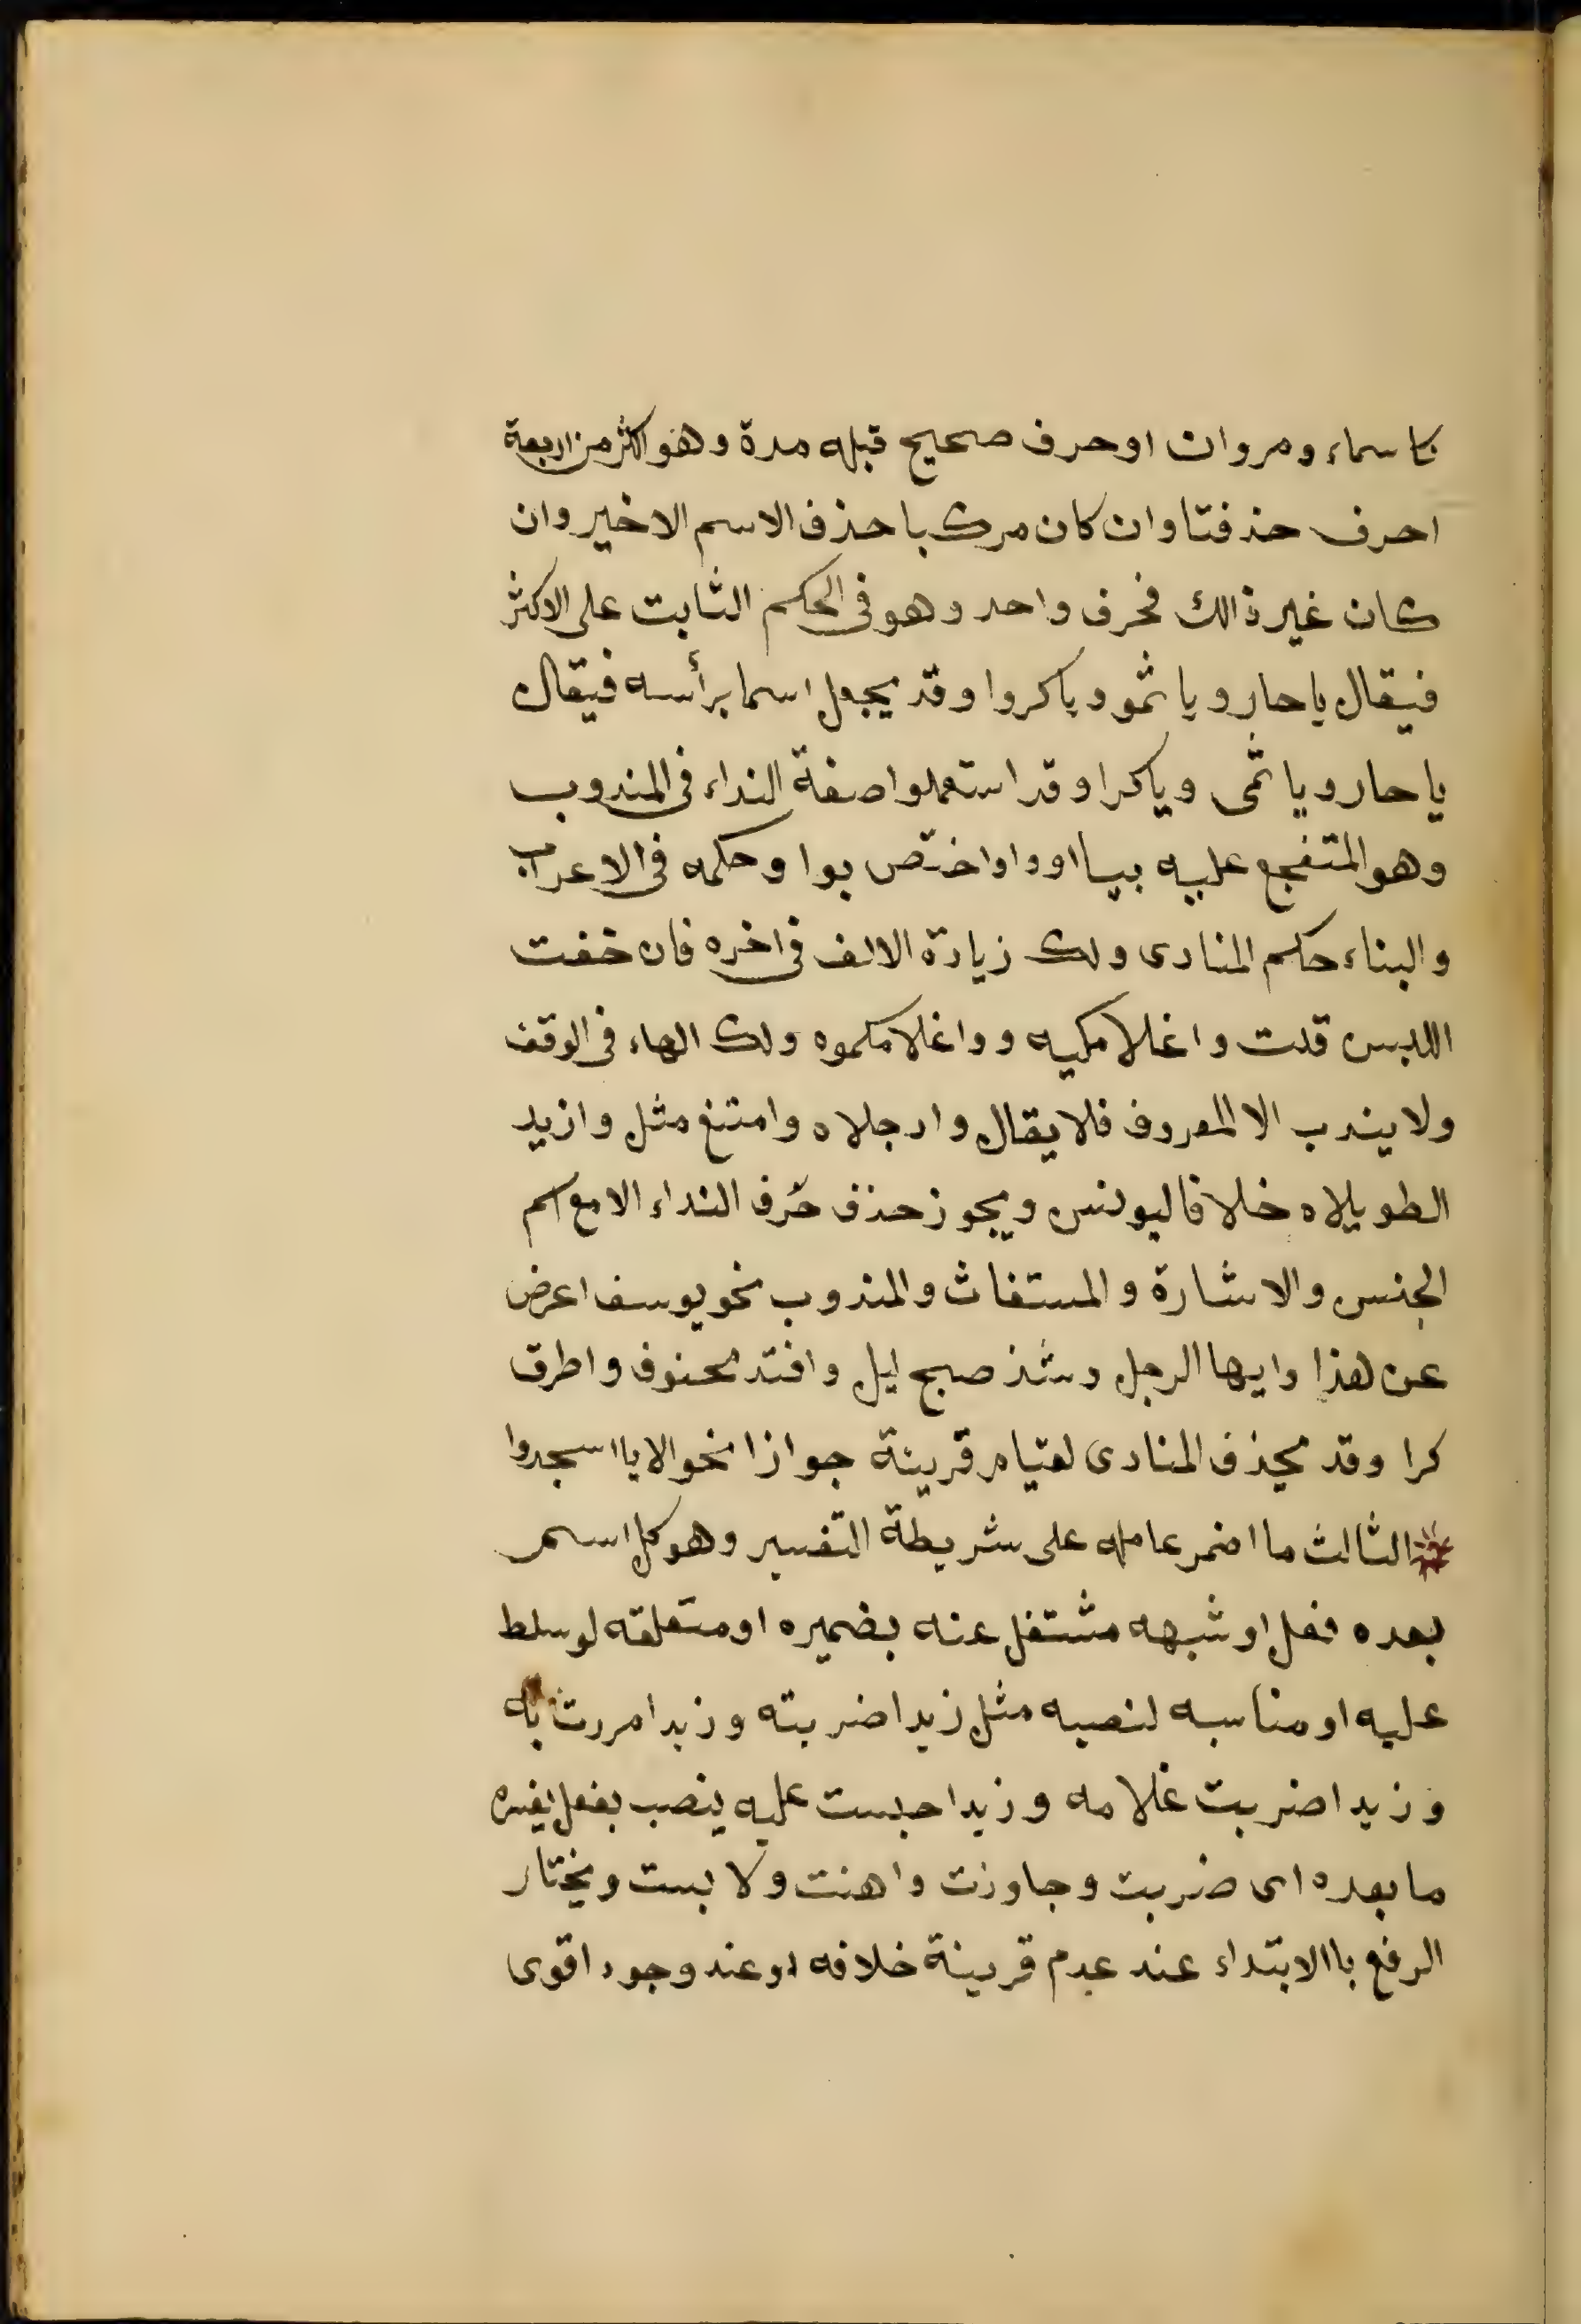 كاسماء ومروان اوحرف صحيح قبله مدة وهو اكثر من اربعة
احرف حذفتا وان كان مركبا حذف الاسم الاخير وان
كان غير ذالك فحرف واحد وهو فى الحكم الثابت على الاكثر
فيقال ياحار ويا ثمو وياكروا وقد يجعل اسما برأسه فيقال
ياحار ويا ثمى وياكرا وقد استعملوا صغة النداء فى المندوب
وهو المتفجع عليه بيا او وا واختص بوا وحكمه فى الاعراب
والبناء حكم المنادى ولك زيادة الالف فى اخره فان خفت
اللبس قلت واغلامكيه وواغلامكموه ولك الهاء فى الوقف
ولا يندب الا المعروف فلا يقال وارجلاه وامتنع مثل وازيد
الطويلاه خلافا ليونس ويجوز حذف حرف النداء الا مع اسم
الجنس والاشارة والمستغاث والمندوب نحو يوسف اعرض
عن هذا وايها الرجل وشذ صبح ليل وافتد مخنوف واطرق
كرا وقد يحذف المنادى لقيام قرينة جوازا نحو الا يا اسجدوا
الثالث ما اضمر عامله على شريطة التفسير وهو كل اسم
بعده فعل او شبهه مشتغل عنه بضميره او متعلقه لو سلط
عليه او مناسبه لنصبه مثل زيدا ضربته وزيدا مررت به
وزيدا ضربت غلامه وزيدا حبست عليه ينصب بفعل يفسره
ما بعده اى ضربت وجاوزت واهنت ولابست ويختار
الرفع باالابتداء عند عدم قرينة خلافه او عند وجود اقوى